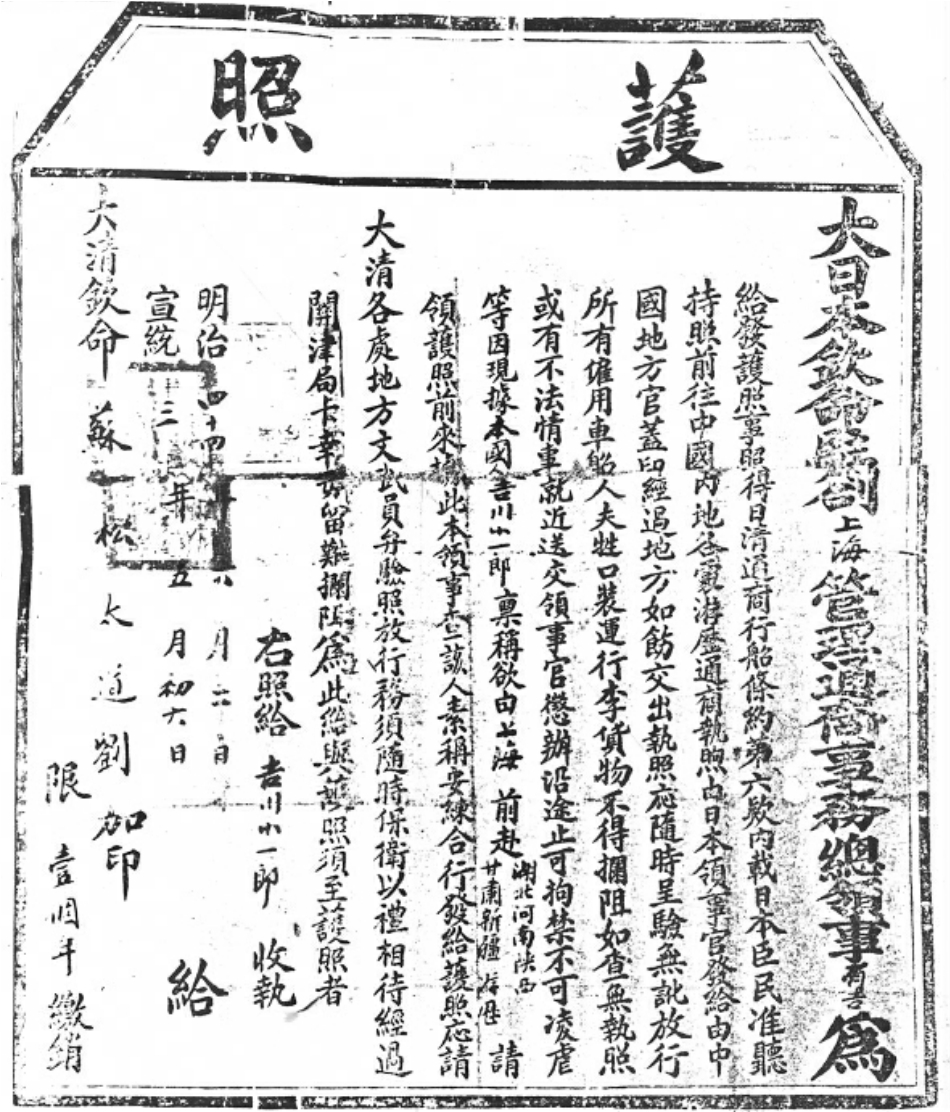 護照
大日本欽命駐劄上海管理通商事務總領事有吉為
給發護照事照得日清通商行船條約第六款內載日本臣民准聽
持照前往中國內地各處游歷通商執照由日本領事官發給由中
國地方官蓋印經過地方如飭交出執照應隨時呈驗無訛放行
所有僱用車船人夫牲口裝運行李貨物不得攔阻如查無執照
或有不法情事就近送交領事官懲辦沿途止可拘禁不可凌虐
等因現據本國人吉川小一郎稟稱欲由上海前赴湖北河南陝西甘肅新疆游歷請
領護照前來據此本領事查該人素稱安練合行發給護照應請
大清各處地方文武員弁驗照放行務須隨時保衛以禮相待經過
關津局卡幸勿留難攔阻為此給與護照須至護照者
右照給吉川小一郎收執
明治四十四年 月二日
宣統三年五月初六日 給
大清欽命蘇松太道劉加印
限壹個年繳銷